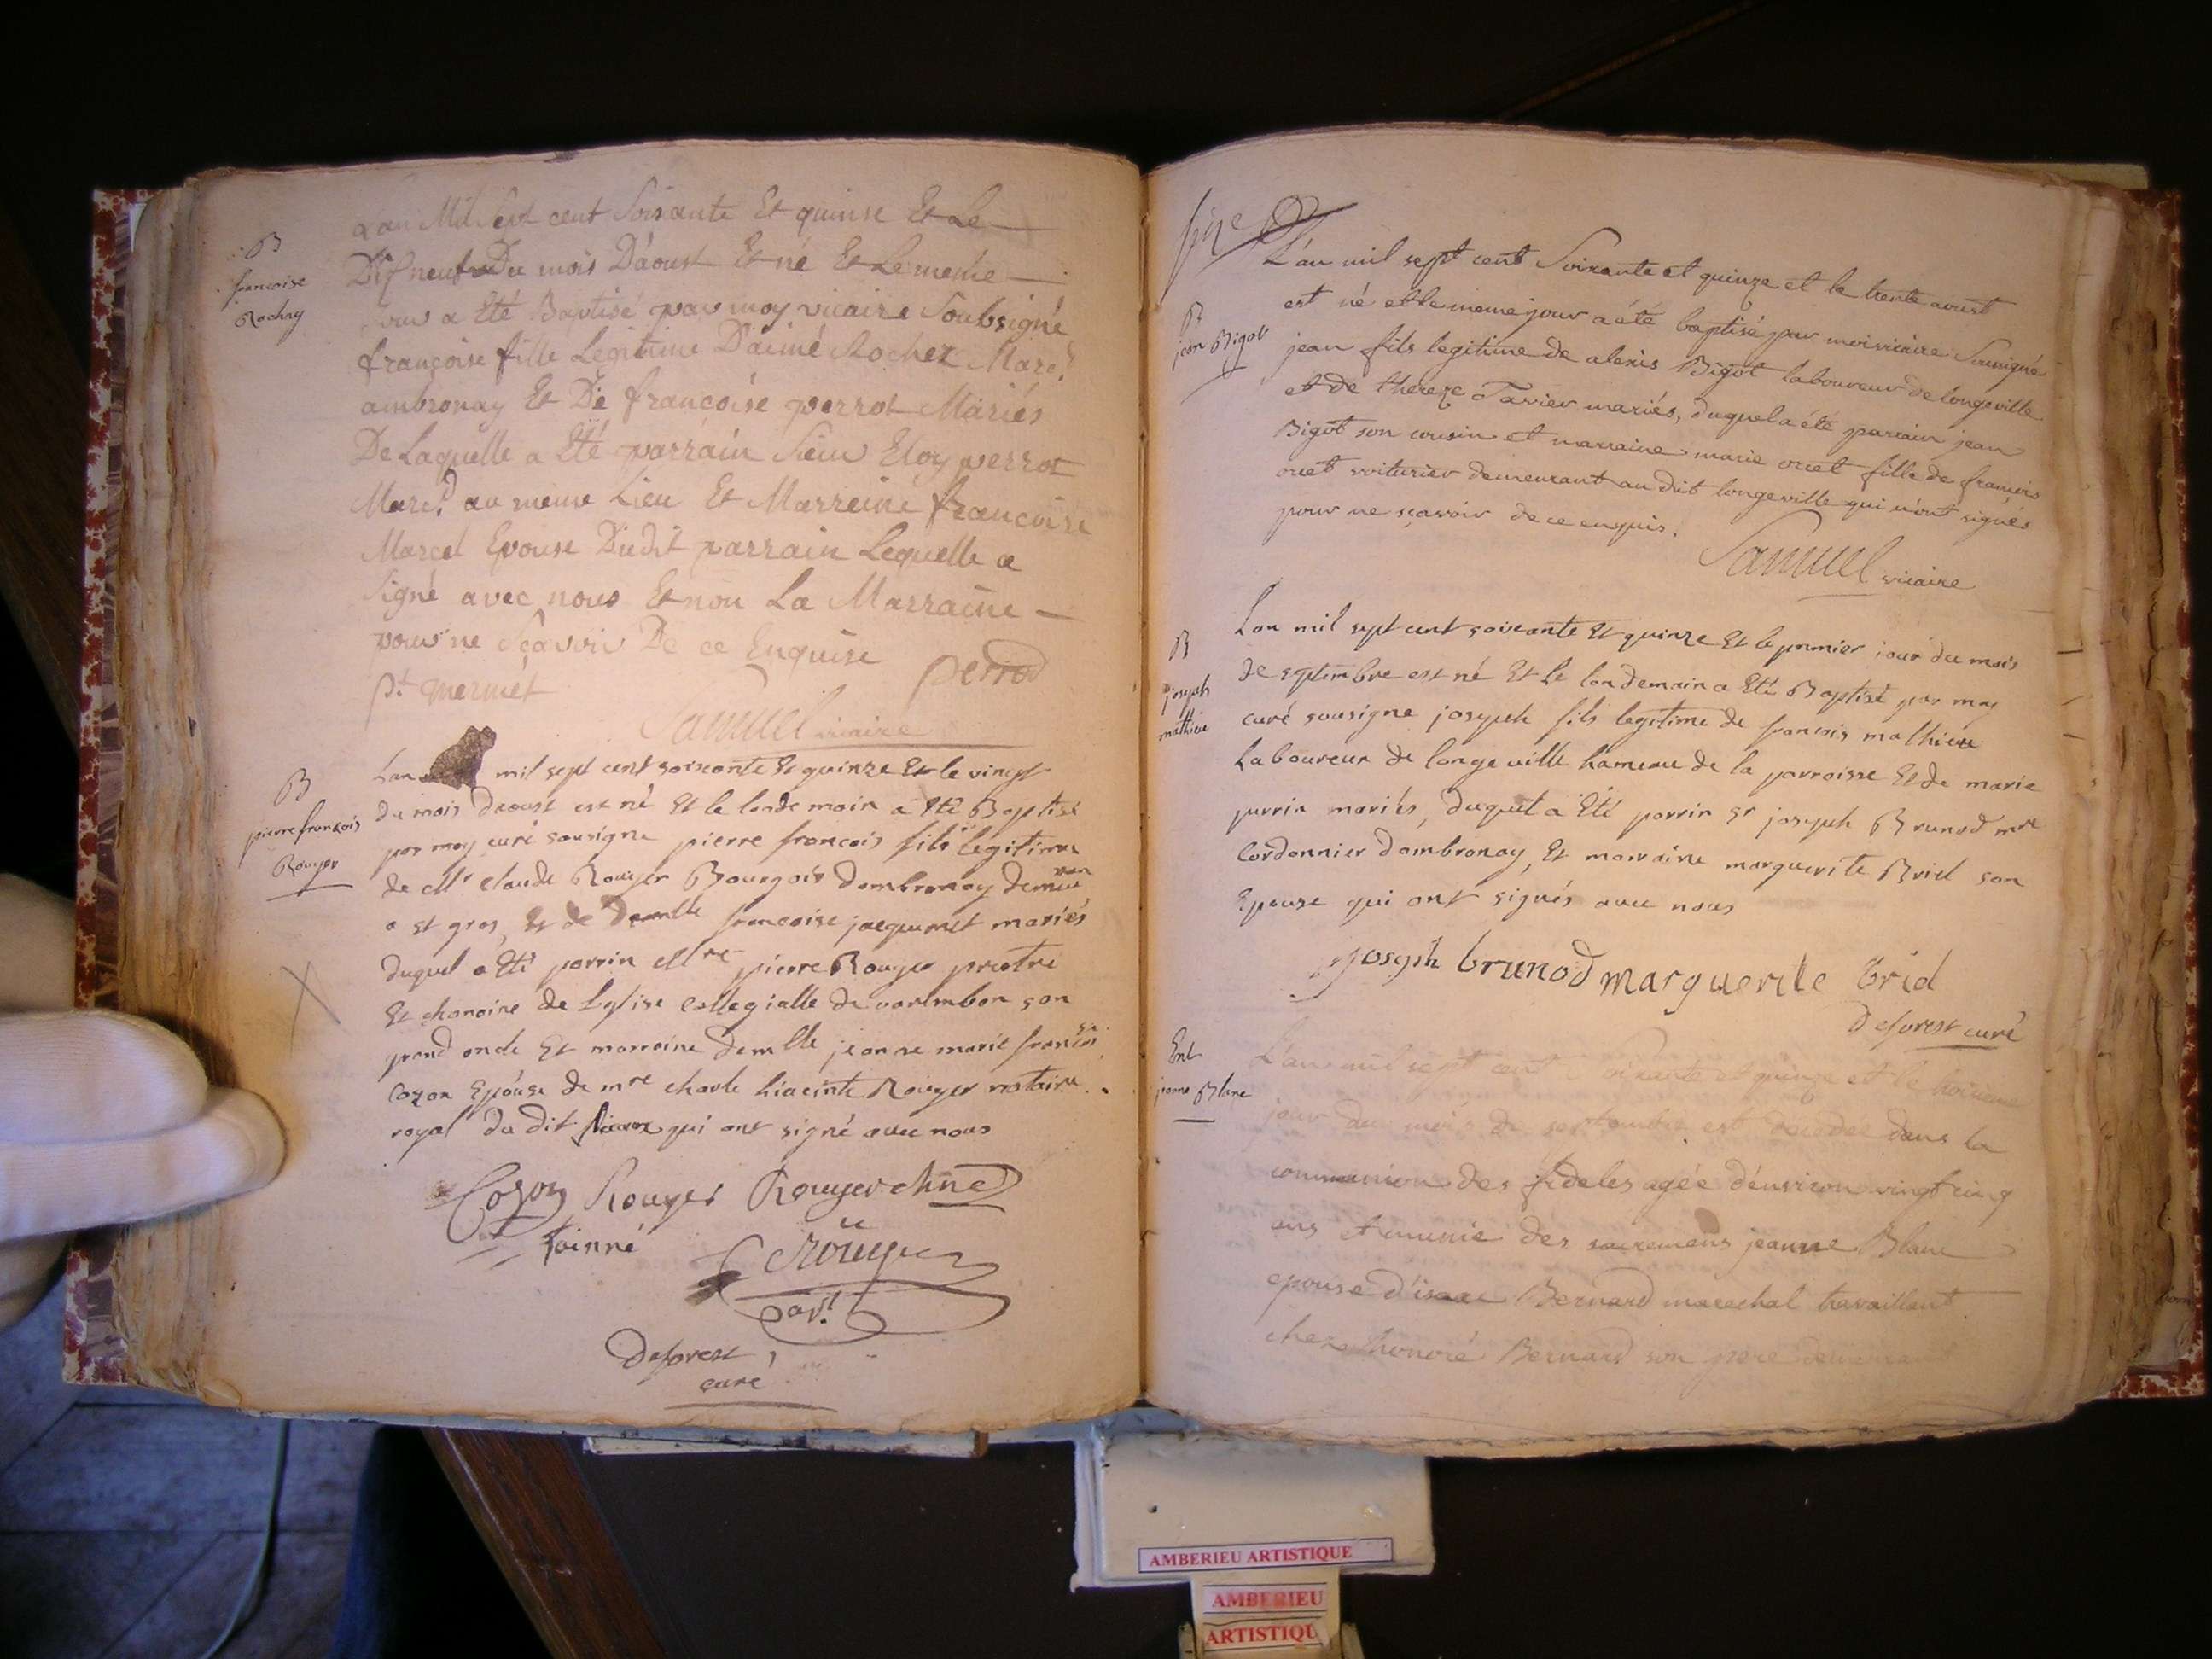 B
francoise
Rochay
Lan Mil Sept cent Soisante Et quinse Et Le
Dix neuf Du mois D'aoust Et né Et Le meme
jour a Eté Baptisé par moy vicaire Soubsigné
françoise fille Legitime D'aimé Rochez Marc.d
ambronay Et De francoise perrot Mariés
De Laquelle a Eté parrain Sieur Eloy perrot
Marc.d au meme Lieu Et Marreine francoise
Marcel Epouse Dudit parrain Lequelle a
Signé avec nous Et non La Marraine
pour ne Sçavoir De ce Enquise
perrod
p.t mermet
Samuel vicaire
B
pierre françois
Rouyer
Lan mil sept cent soixante Et quinze Et le vingt
du mois daoust est né Et le lendemain a Eté Baptisé
par moy curé sousigne pierre francois fils legitime
de Mr claude Rouyer Bourgois dambronay demeuran
a st gros, Et de demlle francoise jacquemet mariés
duquel a Eté parrin Mre pierre Rouyer prestre
Et chanoine de Leglise collegialle de varembon son
grand oncle Et marraine demlle jeanne marie francoise
Cozon Epouse de mre charle hiacinte Rouyer notaire
royal du dit qui ont signé avec nous
Cozon Rouyer Rouyer chne
Lainné
Roüyer
Deforest
curé
L'an mil sept cent Soixante et quinze et le trente aoust
B
jean Bigot
est né et le meme jour a été baptisé par moi vicaire Soussigné
jean fils legitime de alexis Bigot laboureur de longeville
et de thereze Tavier mariés, duquel a été parrain jean
Bigot son cousin et marraine marie oriet fille de françois
oriet voiturier demeurant au dit longeville qui n'ont signés
pour ne sçavoir de ce enquis.
Samuel vicaire
B
joseph
mathieu
Lan mil sept cent soixante Et quinze Et le premier jour du mois
de septembre est né Et Le lendemain a Eté Baptisé par moy
curé sousigne joseph fils legitime de francois mathieu
Laboureur de longeville hameau de la parroisse Et de marie
perrin mariés, duquel a Eté parrin sr joseph Brunod mre
Cordonnier dambronay, Et marraine marguerite Brid son
Epouse qui ont signés avec nous
joseph brunod marguerite brid
Deforest curé
Ent
jeanne Blanc
L'an mil sept cent soixante et quinze et le troisieme
jour du mois de septembre est decedée dans la
communion des fideles agée d'environ vingt cinq
ans et munie des sacremens jeanne Blanc
epouse d'isaac Bernard marechal travaillant
chez honoré Bernard son pere demeurant
AMBERIEU ARTISTIQUE
AMBERIEU
ARTISTIQU